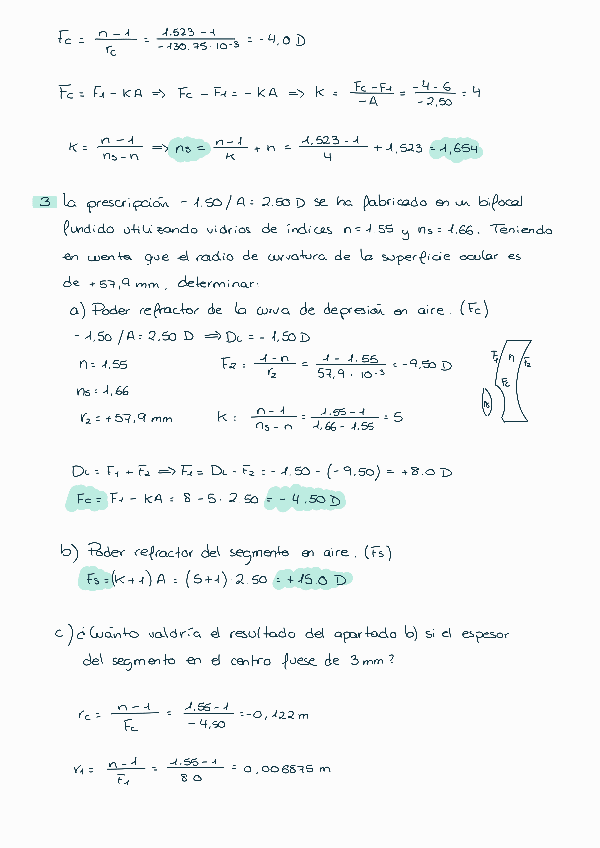 Fc = (n - 1)/rc = (1.523 - 1)/(-130.75 · 10⁻³) = - 4,0 D
Fc = F1 - KA ⇒ Fc - F1 = - KA ⇒ K = (Fc - F1)/(-A) = (-4 - 6)/(-2,50) = 4
K = (n - 1)/(ns - n) ⇒ ns = (n - 1)/K + n = (1,523 - 1)/4 + 1,523 = 1,654
3 La prescripción - 1.50 / A = 2.50 D se ha fabricado en un bifocal
fundido utilizando vidrios de índices n = 1 55 y ns = 1.66. Teniendo
en cuenta que el radio de curvatura de la superficie ocular es
de +57,9 mm, determinar:
a) Poder refractor de la curva de depresión en aire. (Fc)
- 1,50 / A = 2,50 D ⇒ DL = - 1,50 D
n = 1,55 F2 = (1 - n)/r2 = (1 - 1.55)/(57,9 · 10⁻³) = -9,50 D
ns = 1,66
r2 = +57,9 mm K = (n - 1)/(ns - n) = (1.55 - 1)/(1.66 - 1.55) = 5
F1 n F2
Fc
ns
DL = F1 + F2 ⇒ F1 = DL - F2 = - 1.50 - (- 9.50) = +8.0 D
Fc = F1 - KA = 8 - 5 · 2 50 = - 4.50 D
b) Poder refractor del segmento en aire. (Fs)
Fs = (K + 1) A = (5 + 1) · 2.50 = +15.0 D
c) ¿Cuánto valdría el resultado del apartado b) si el espesor
del segmento en el centro fuese de 3 mm?
rc = (n - 1)/Fc = (1.55 - 1)/(- 4,50) = -0,122 m
r1 = (n - 1)/F1 = (1.55 - 1)/80 = 0,006875 m